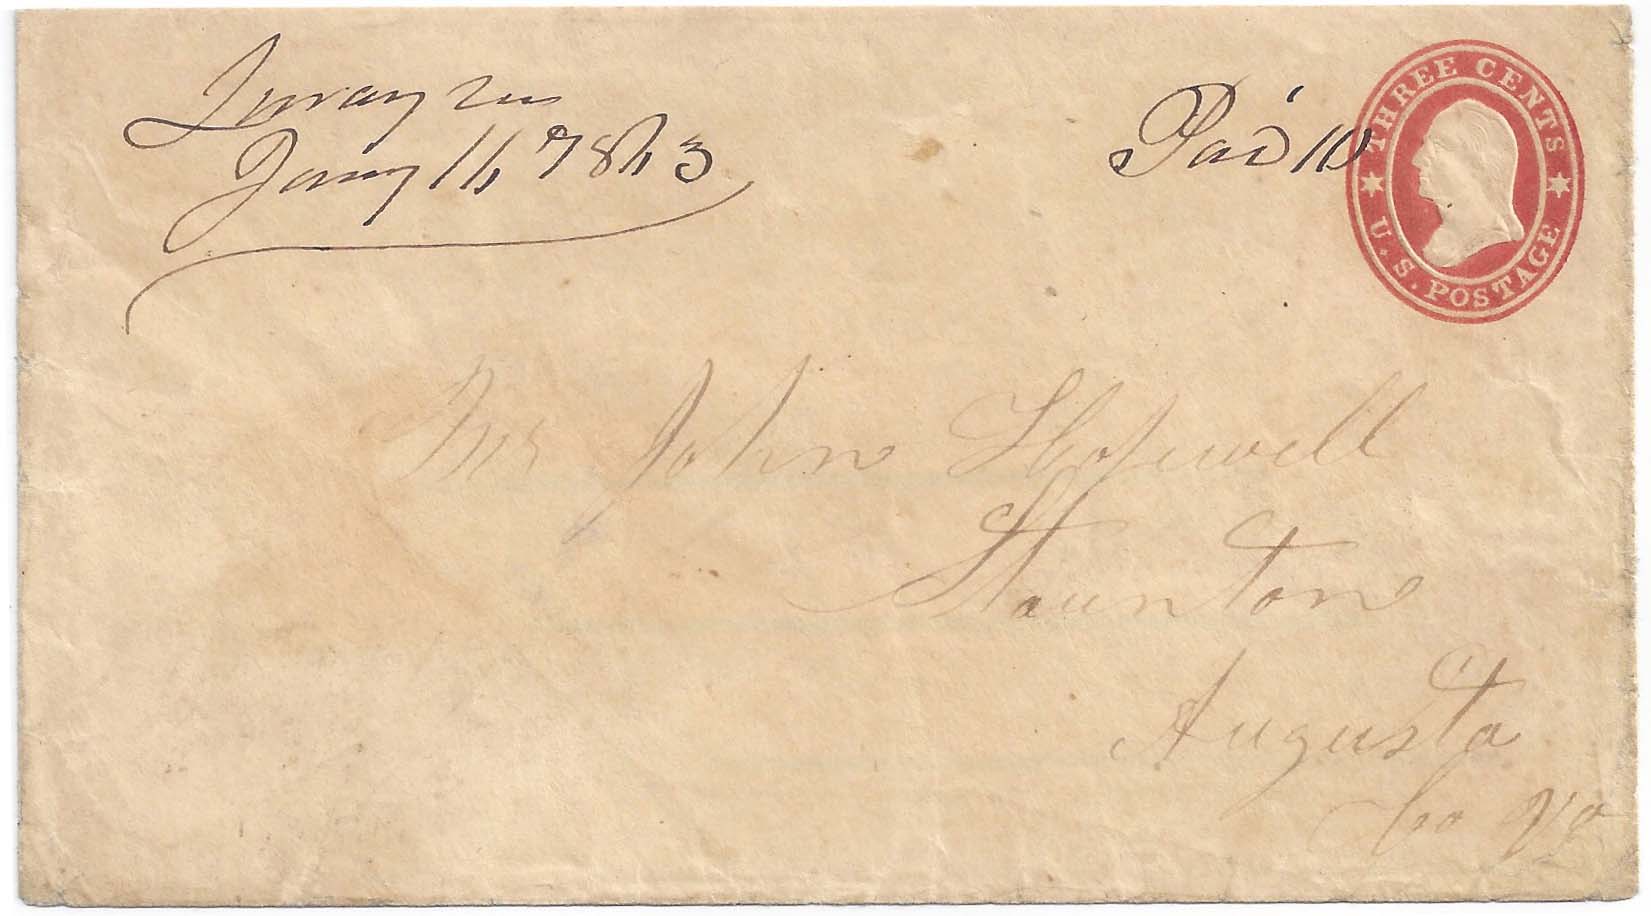 Luray Va
Jany 16, 1863
Paid 10
THREE CENTS
U.S. POSTAGE
Mr John Hopewell
Staunton
Augusta
Co Va